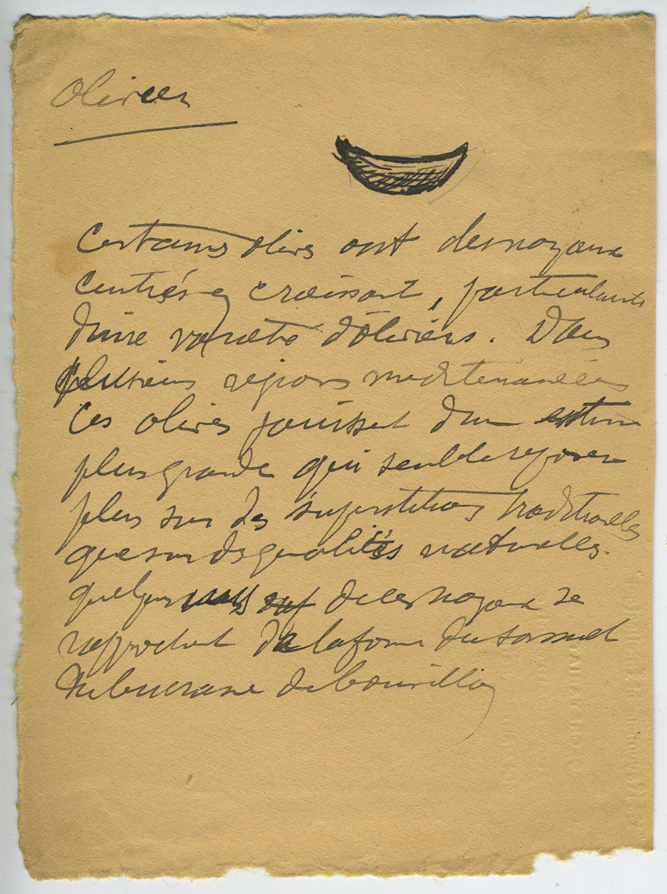 Olivier
Certains olives ont des noyaux
centrés en croissant, particularité
d'une variété d'oliviers. Dans
plusieurs régions méditerranéennes
ces olives jouissent d'une estime
plus grande qui semble reposer
plus sur des superstitions traditionelles
que sur des qualités naturelles.
quelques uns de ces noyaux se
rapprochent de la forme du
du bucrane de bouvillon